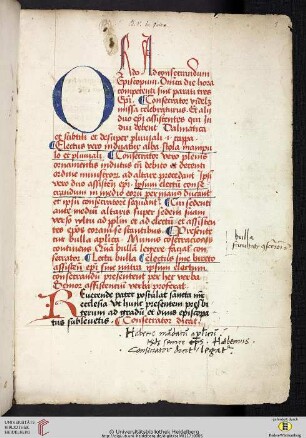 Ordo Ad consecrandum
Episcopum. Dnica die hora
competenti sint parati tres
Epi. Consecrator videlz
missa celebraturus. Et alii
duo epi assistentes qui in
duti debent Dalmatica
et subtili et desuper pluviali
Electus vero induatur alba stola manipu
lo et pluviali. Consecrator vero plenis
ornamentis indutus ut debito et decenti
ordine ministror. ad altare procedant
vero duo assisten. epi. ipsum electum conse
crandum in medio eorum per manus ducant
et ipsi consecratorem sequantur. Quo sedenti
ante medium altaris super sedem suam
verso vultu ad populum et ad electum et assisten
tes epos coram se stantibus. Presente
tur bulla
Qua bulla lecta faciat con
secrator. Lecta bulla electus sine birreto
assisten epi sine mitra ipsum electum
consecrandum presentent per hec verba
Senior assistentium verba proferat.
Reverende pater postulat sancta mr
ecclesia Ut hunc presentem presbi
terum ad gradum et onus episcopa
tus sublevetis. Consecrator dicat.
Habetis mandatum aplicum.
Rndet senior eps. Habemus.
Consecrator dicat legatur
bulla
UNIVERSITÄTS-
BIBLIOTHEK
HEIDELBERG
Universitätsbibliothek Heidelberg